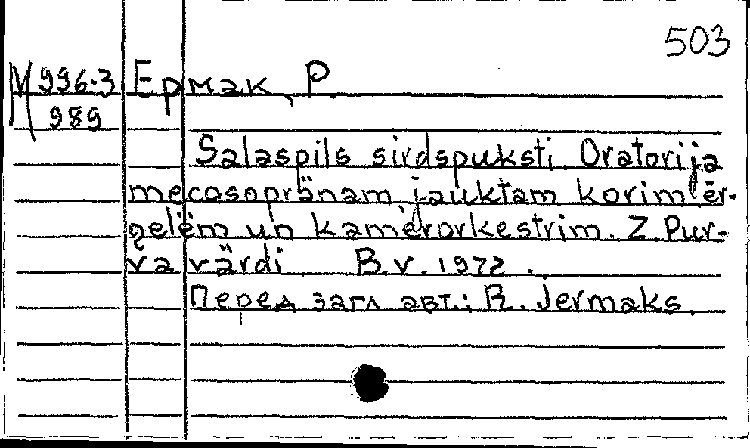 503
М 996-3 Ермак, Р.
989
Salaspils sirdspuksti Oratorija
mecosoprānam, jauktam korim ēr-
ģelēm un kamerorkestrim. Z. Pur-
va vārdi B.v. 1972.
Перед загл авт.: R. Jermaks.